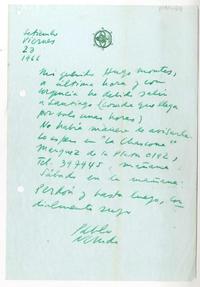 Setiembre
Viernes
23
1966
Mi querido Hugo Montes,
a última hora y con
urgencia he debido salir
a Santiago (
por sólo unas horas)
No había manera de avisarle.
Lo espero en "La Chascona"
Marquez de la Plata 0192,
Tel. 397945, mañana
Sábado en la mañana.
Perdón y hasta luego, cor-
dialmente suyo
Pablo
Neruda